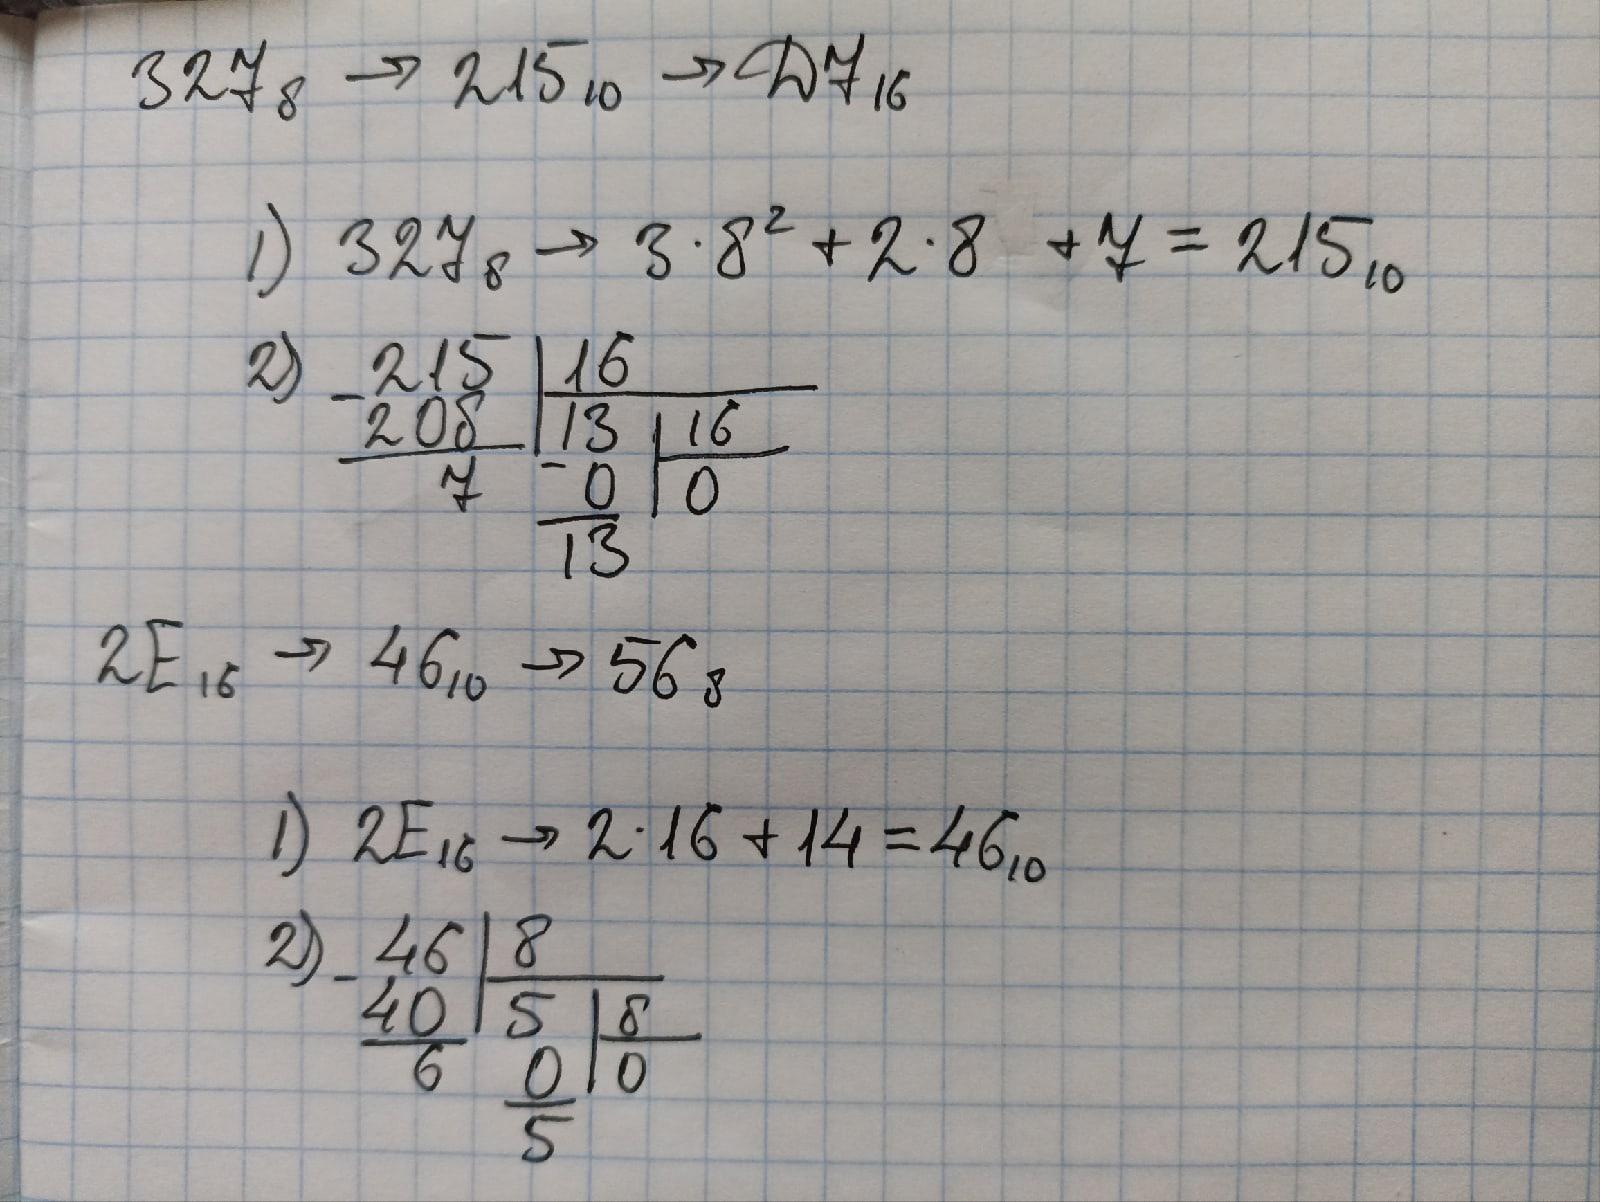 327₈ → 215₁₀ → D7₁₆
1) 327₈ → 3·8² + 2·8 + 7 = 215₁₀
2) - 215 | 16
208 | 13 | 16
7 - 0 | 0
13
2E₁₆ → 46₁₀ → 56₈
1) 2E₁₆ → 2·16 + 14 = 46₁₀
2) - 46 | 8
40 | 5 | 8
6 0 | 0
5